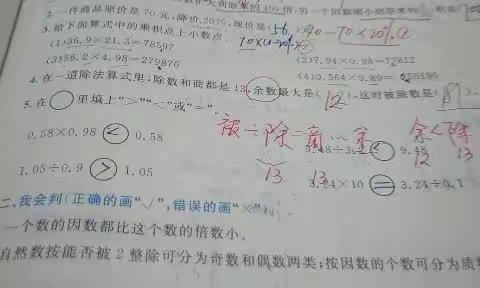 2. 一件商品原价是 70 元,降价 20%,现价是(56)
70-70×20%
70×(1-20%)
3. 给下面算式中的乘积点上小数点
(1) 36.9×21.3=78597
(2) 7.94×0.98=77812
(3) 56.2×4.98=279876
(4) 0.564×0.89=
4. 在一道除法算式里,除数和商都是 13,余数最大是(12),这时被除数是(
5. 在○里填上“>”“<”或“=”
被÷除=商…余 余<除
13 13 12 13
0.58×0.98 < 0.58 < 9.48
1.05÷0.9 > 1.05 3.24×10 = 3.24÷0.1
二、我会判(正确的画“√”,错误的画“×”
一个数的因数都比这个数的倍数小。
自然数按能否被 2 整除可分为奇数和偶数两类;按因数的个数可分为质